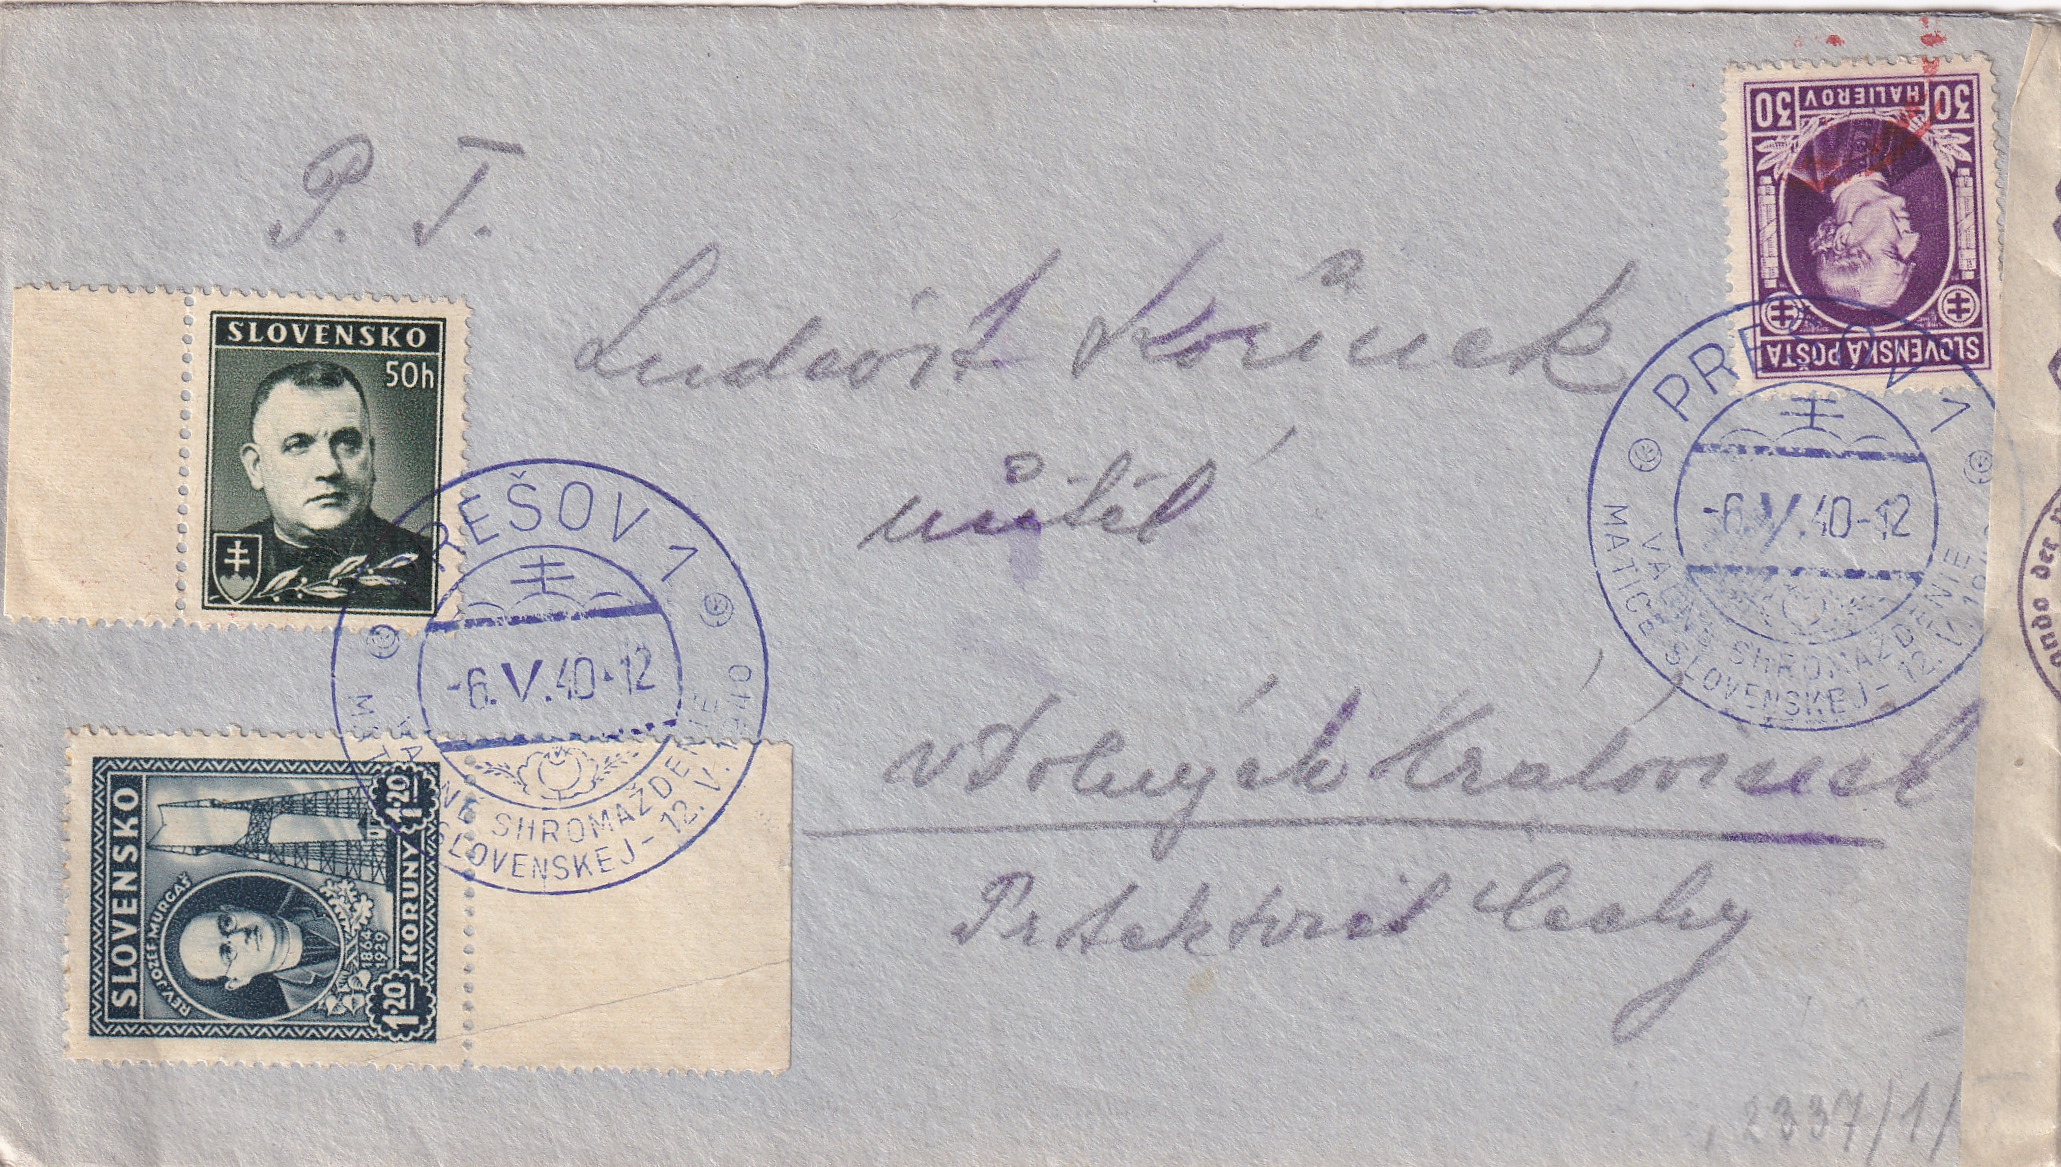 P. T.
Ludvík Kořínek
učitel
v Dolných Kralovicích
Protektorát Čechy
SLOVENSKO
50h
SLOVENSKO
REV. JOZEF MURGAŠ
1864-1929
1·20 KORUNY 1·20
30 HALIEROV 30
SLOVENSKÁ POŠTA
PREŠOV 1
-6.V.40-12
VALNÉ SHROMAŽDENIE
MATICE SLOVENSKEJ - 12.V.1940
PREŠOV 1
-6.V.40-12
VALNÉ SHROMAŽDENIE
MATICE SLOVENSKEJ - 12.V.1940
2337/1/